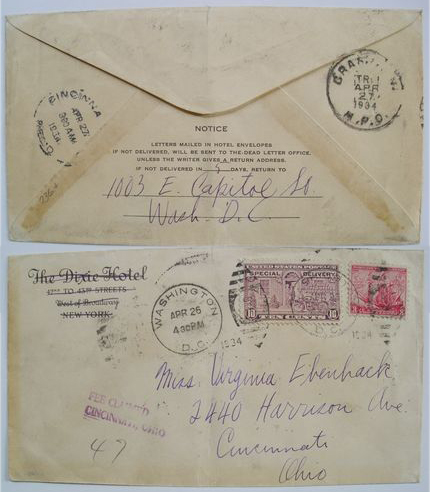 CINCINNA
APR 27
1934
GRAF
TR.1
APR
27
1934
R.P.O.
NOTICE
LETTERS MAILED IN HOTEL ENVELOPES
IF NOT DELIVERED, WILL BE SENT TO THE DEAD LETTER OFFICE,
UNLESS THE WRITER GIVES A RETURN ADDRESS.
IF NOT DELIVERED IN 5 DAYS, RETURN TO
1003 E. Capitol St.
Wash. D.C.
The Dixie Hotel
42ND TO 43RD STREETS
West of Broadway
NEW YORK
WASHINGTON
APR 26
4 30 PM
D.C.
1934
UNITED STATES POSTAGE
SPECIAL DELIVERY
10 TEN CENTS 10
1934
FEE CLAIMED
CINCINNATI, OHIO
47
Miss Virginia Ebenhack
2440 Harrison Ave.
Cincinnati
Ohio